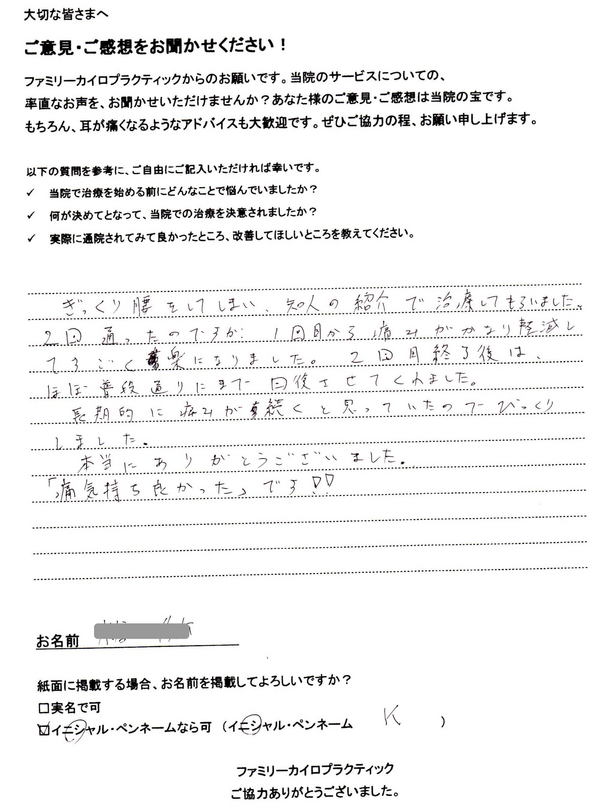 大切な皆さまへ
ご意見・ご感想をお聞かせください！
ファミリーカイロプラクティックからのお願いです。当院のサービスについての、
率直なお声を、お聞かせいただけませんか？あなた様のご意見・ご感想は当院の宝です。
もちろん、耳が痛くなるようなアドバイスも大歓迎です。ぜひご協力の程、お願い申し上げます。
以下の質問を参考に、ご自由にご記入いただければ幸いです。
✓ 当院で治療を始める前にどんなことで悩んでいましたか？
✓ 何が決めてとなって、当院での治療を決意されましたか？
✓ 実際に通院されてみて良かったところ、改善してほしいところを教えてください。
ぎっくり腰をしてしまい、知人の紹介で治療してもらいました。
2回通ったのですが、1回目から痛みがかなり軽減し
てすごく楽になりました。2回目終了後は、
ほぼ普段通りにまで回復させてくれました。
長期的に痛みが続くと思っていたのでびっくり
しました。
本当にありがとうございました。
「痛気持ち良かった」です!!
お名前
紙面に掲載する場合、お名前を掲載してよろしいですか？
□実名で可
☑イニシャル・ペンネームなら可（イニシャル・ペンネーム K ）
ファミリーカイロプラクティック
ご協力ありがとうございました。